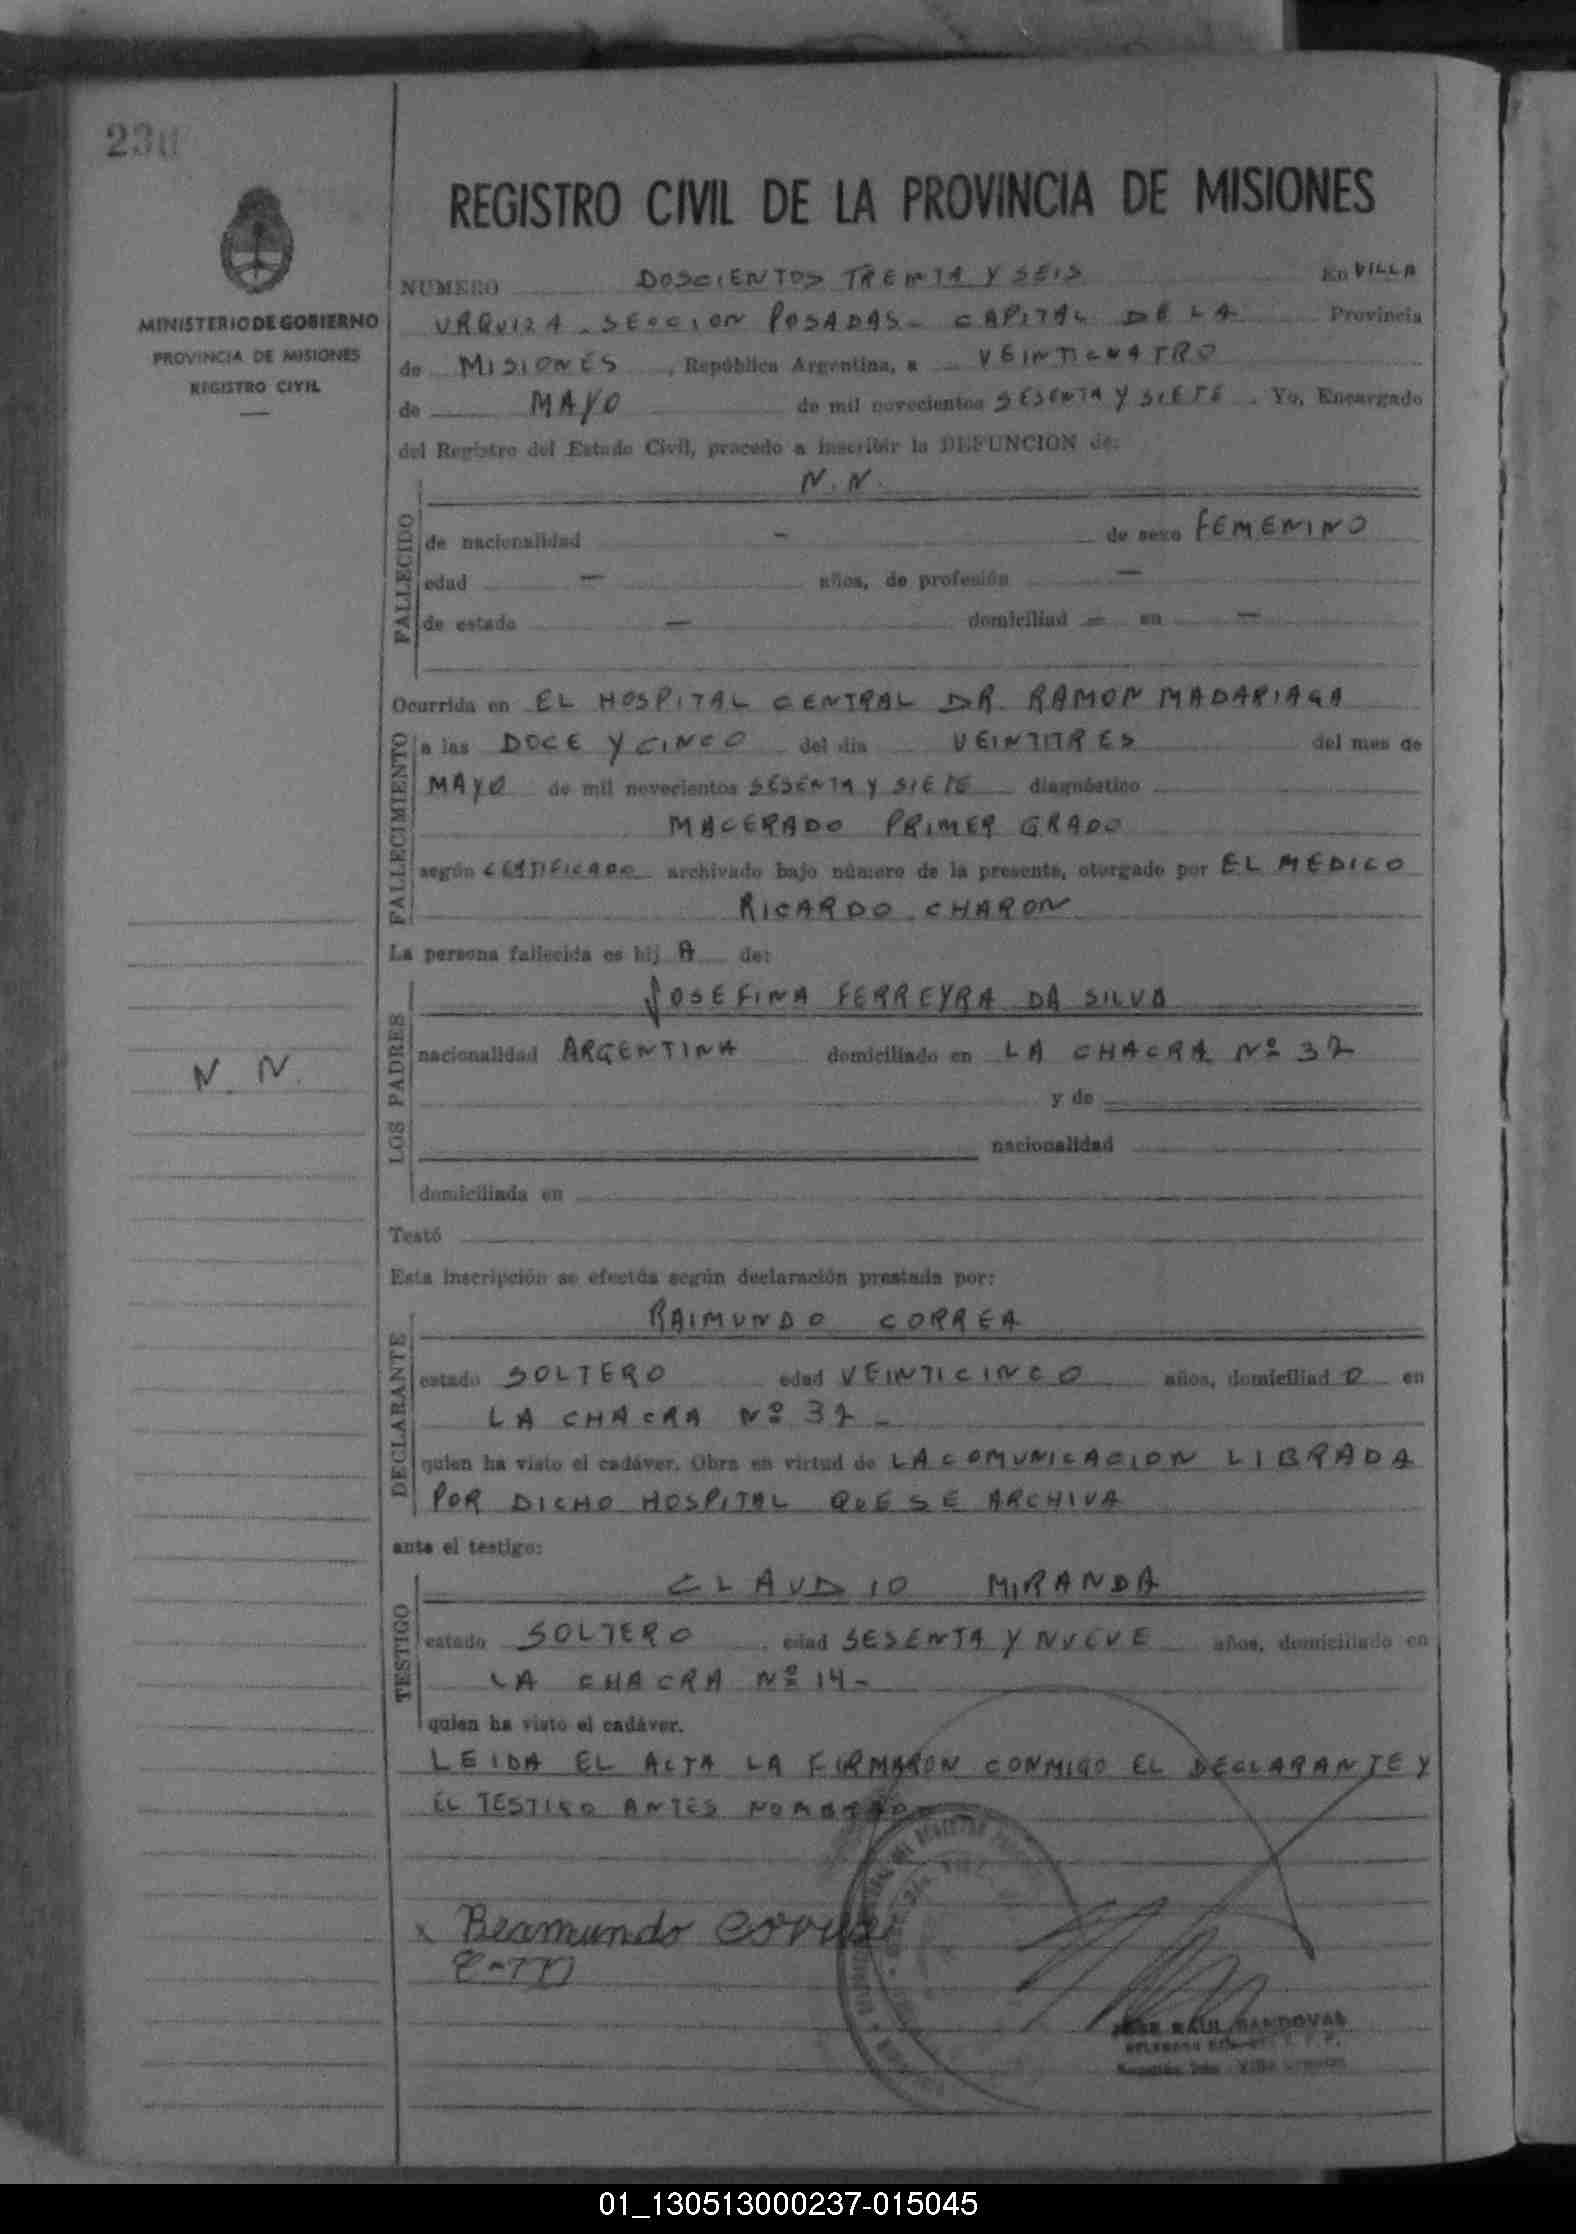 REGISTRO CIVIL DE LA PROVINCIA DE MISIONES
MINISTERIO DE GOBIERNO
PROVINCIA DE MISIONES
REGISTRO CIVIL
NUMERO DOSCIENTOS TREINTA Y SEIS En VILLA
URQUIZA - SECCION POSADAS - CAPITAL DE LA Provincia
de MISIONES, República Argentina, a VEINTICUATRO
de MAYO de mil novecientos SESENTA Y SIETE. Yo, Encargado
del Registro del Estado Civil, procedo a inscribir la DEFUNCION de:
N. N.
FALLECIDO
de nacionalidad - de sexo FEMENINO
edad — años, de profesión —
de estado — domiciliad — en —
Ocurrida en EL HOSPITAL CENTRAL DR. RAMON MADARIAGA
FALLECIMIENTO
a las DOCE Y CINCO del dia VEINTITRES del mes de
MAYO de mil novecientos SESENTA Y SIETE diagnóstico
MACERADO PRIMER GRADO
según CERTIFICADO archivado bajo número de la presente, otorgado por EL MEDICO
RICARDO CHARON
La persona fallecida es hij A de:
LOS PADRES
JOSEFINA FERREYRA DA SILVA
nacionalidad ARGENTINA domiciliado en LA CHACRA Nº 32
y de
nacionalidad
domiciliada en
N. N.
Testó
Esta inscripción se efectúa según declaración prestada por:
DECLARANTE
RAIMUNDO CORREA
estado SOLTERO edad VEINTICINCO años, domiciliad O en
LA CHACRA Nº 32 -
quien ha visto el cadáver. Obra en virtud de LA COMUNICACION LIBRADA
POR DICHO HOSPITAL QUE SE ARCHIVA
ante el testigo:
TESTIGO
CLAUDIO MIRANDA
estado SOLTERO edad SESENTA Y NUEVE años, domiciliado en
LA CHACRA Nº 14 -
quien ha visto el cadáver.
LEIDA EL ACTA LA FIRMARON CONMIGO EL DECLARANTE Y
EL TESTIGO ANTES NOMBRADO
x Beamundo Correa
JOSE RAUL SANDOVAL
01_130513000237-015045